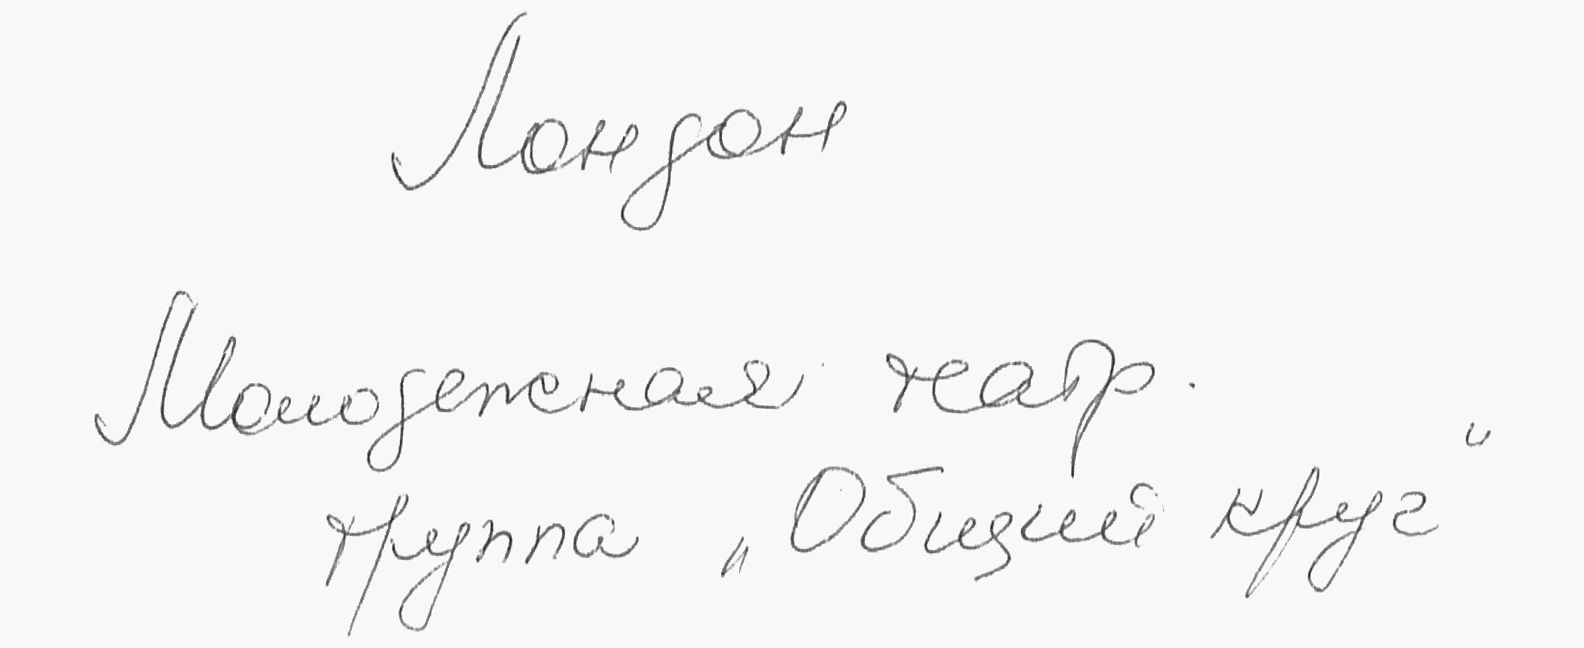 Лондон
Молодежная театр.
труппа „Общий круг“